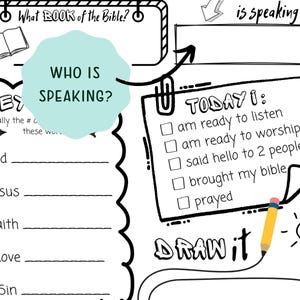 What BOOK of the Bible?
is speaking
WHO IS
SPEAKING?
EY
lly the #
these wor
TODAY i:
am ready to listen
am ready to worship
said hello to 2 people
brought my bible
prayed
d
sus
aith
ove
Sin
DRAW it